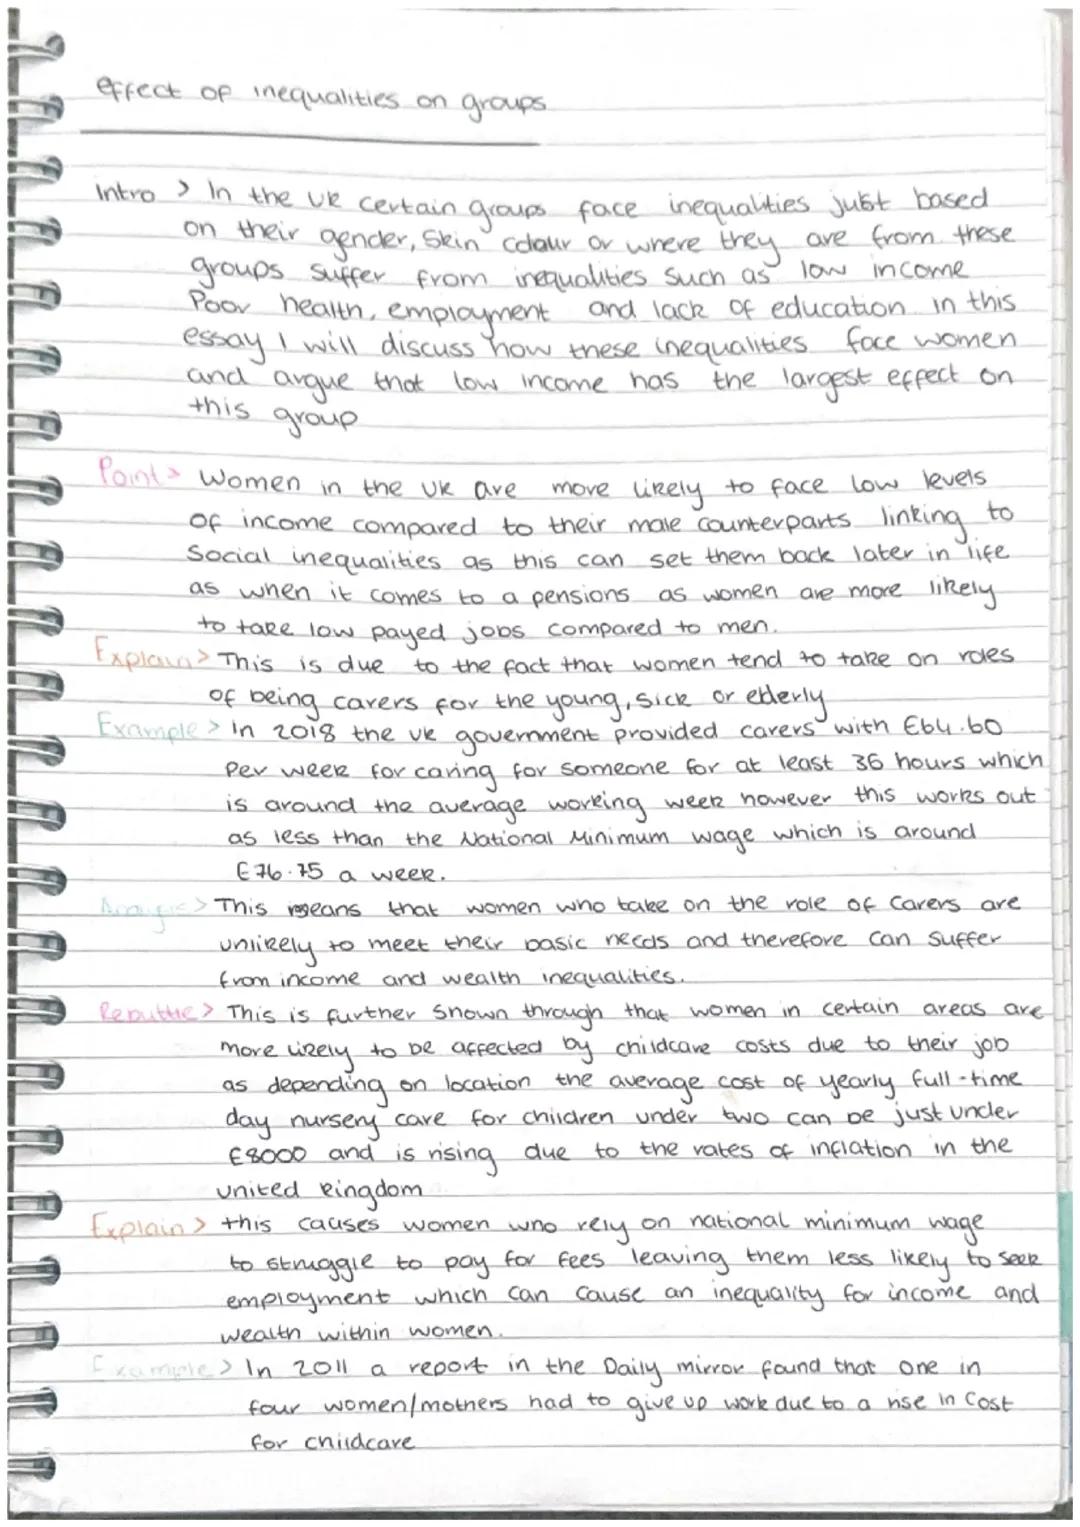 effect of inequalities on groups
Intro > In the UK certain groups face inequalities just based
on their gender, skin colour or where they are from. these
groups suffer from inequalities such as low income
Poor health, employment and lack of education in this
essay I will discuss how these inequalities face women
and argue that low income has the largest effect on
this group
Point > Women in the UK are more likely to face low levels
of income compared to their male counterparts linking to
Social inequalities as this can set them back later in life
as when it comes to a pensions as women are more likely
to take low payed jobs compared to men.
Explain > This is due to the fact that women tend to take on roles
of being carers for the young, sick or elderly
Example > In 2018 the UK government provided carers with £64.60
per week for caring for someone for at least 36 hours which
is around the average working week however this works out
as less than the National Minimum wage which is around
£76.75 a week.
Analysis > This means that women who take on the role of carers are
unlikely to meet their basic needs and therefore can suffer
from income and wealth inequalities.
Rebuttle > This is further shown through that women in certain areas are
more likely to be affected by childcare costs due to their job
as depending on location the average cost of yearly full-time
day nursery care for children under two can be just under
£8000 and is rising due to the rates of inflation in the
united kingdom
Explain > this causes women who rely on national minimum wage
to struggle to pay for fees leaving them less likely to seek
employment which can cause an inequality for income and
wealth within women.
Example > In 2011 a report in the Daily mirror found that one in
four women/mothers had to give up work due to a rise in cost
for childcare